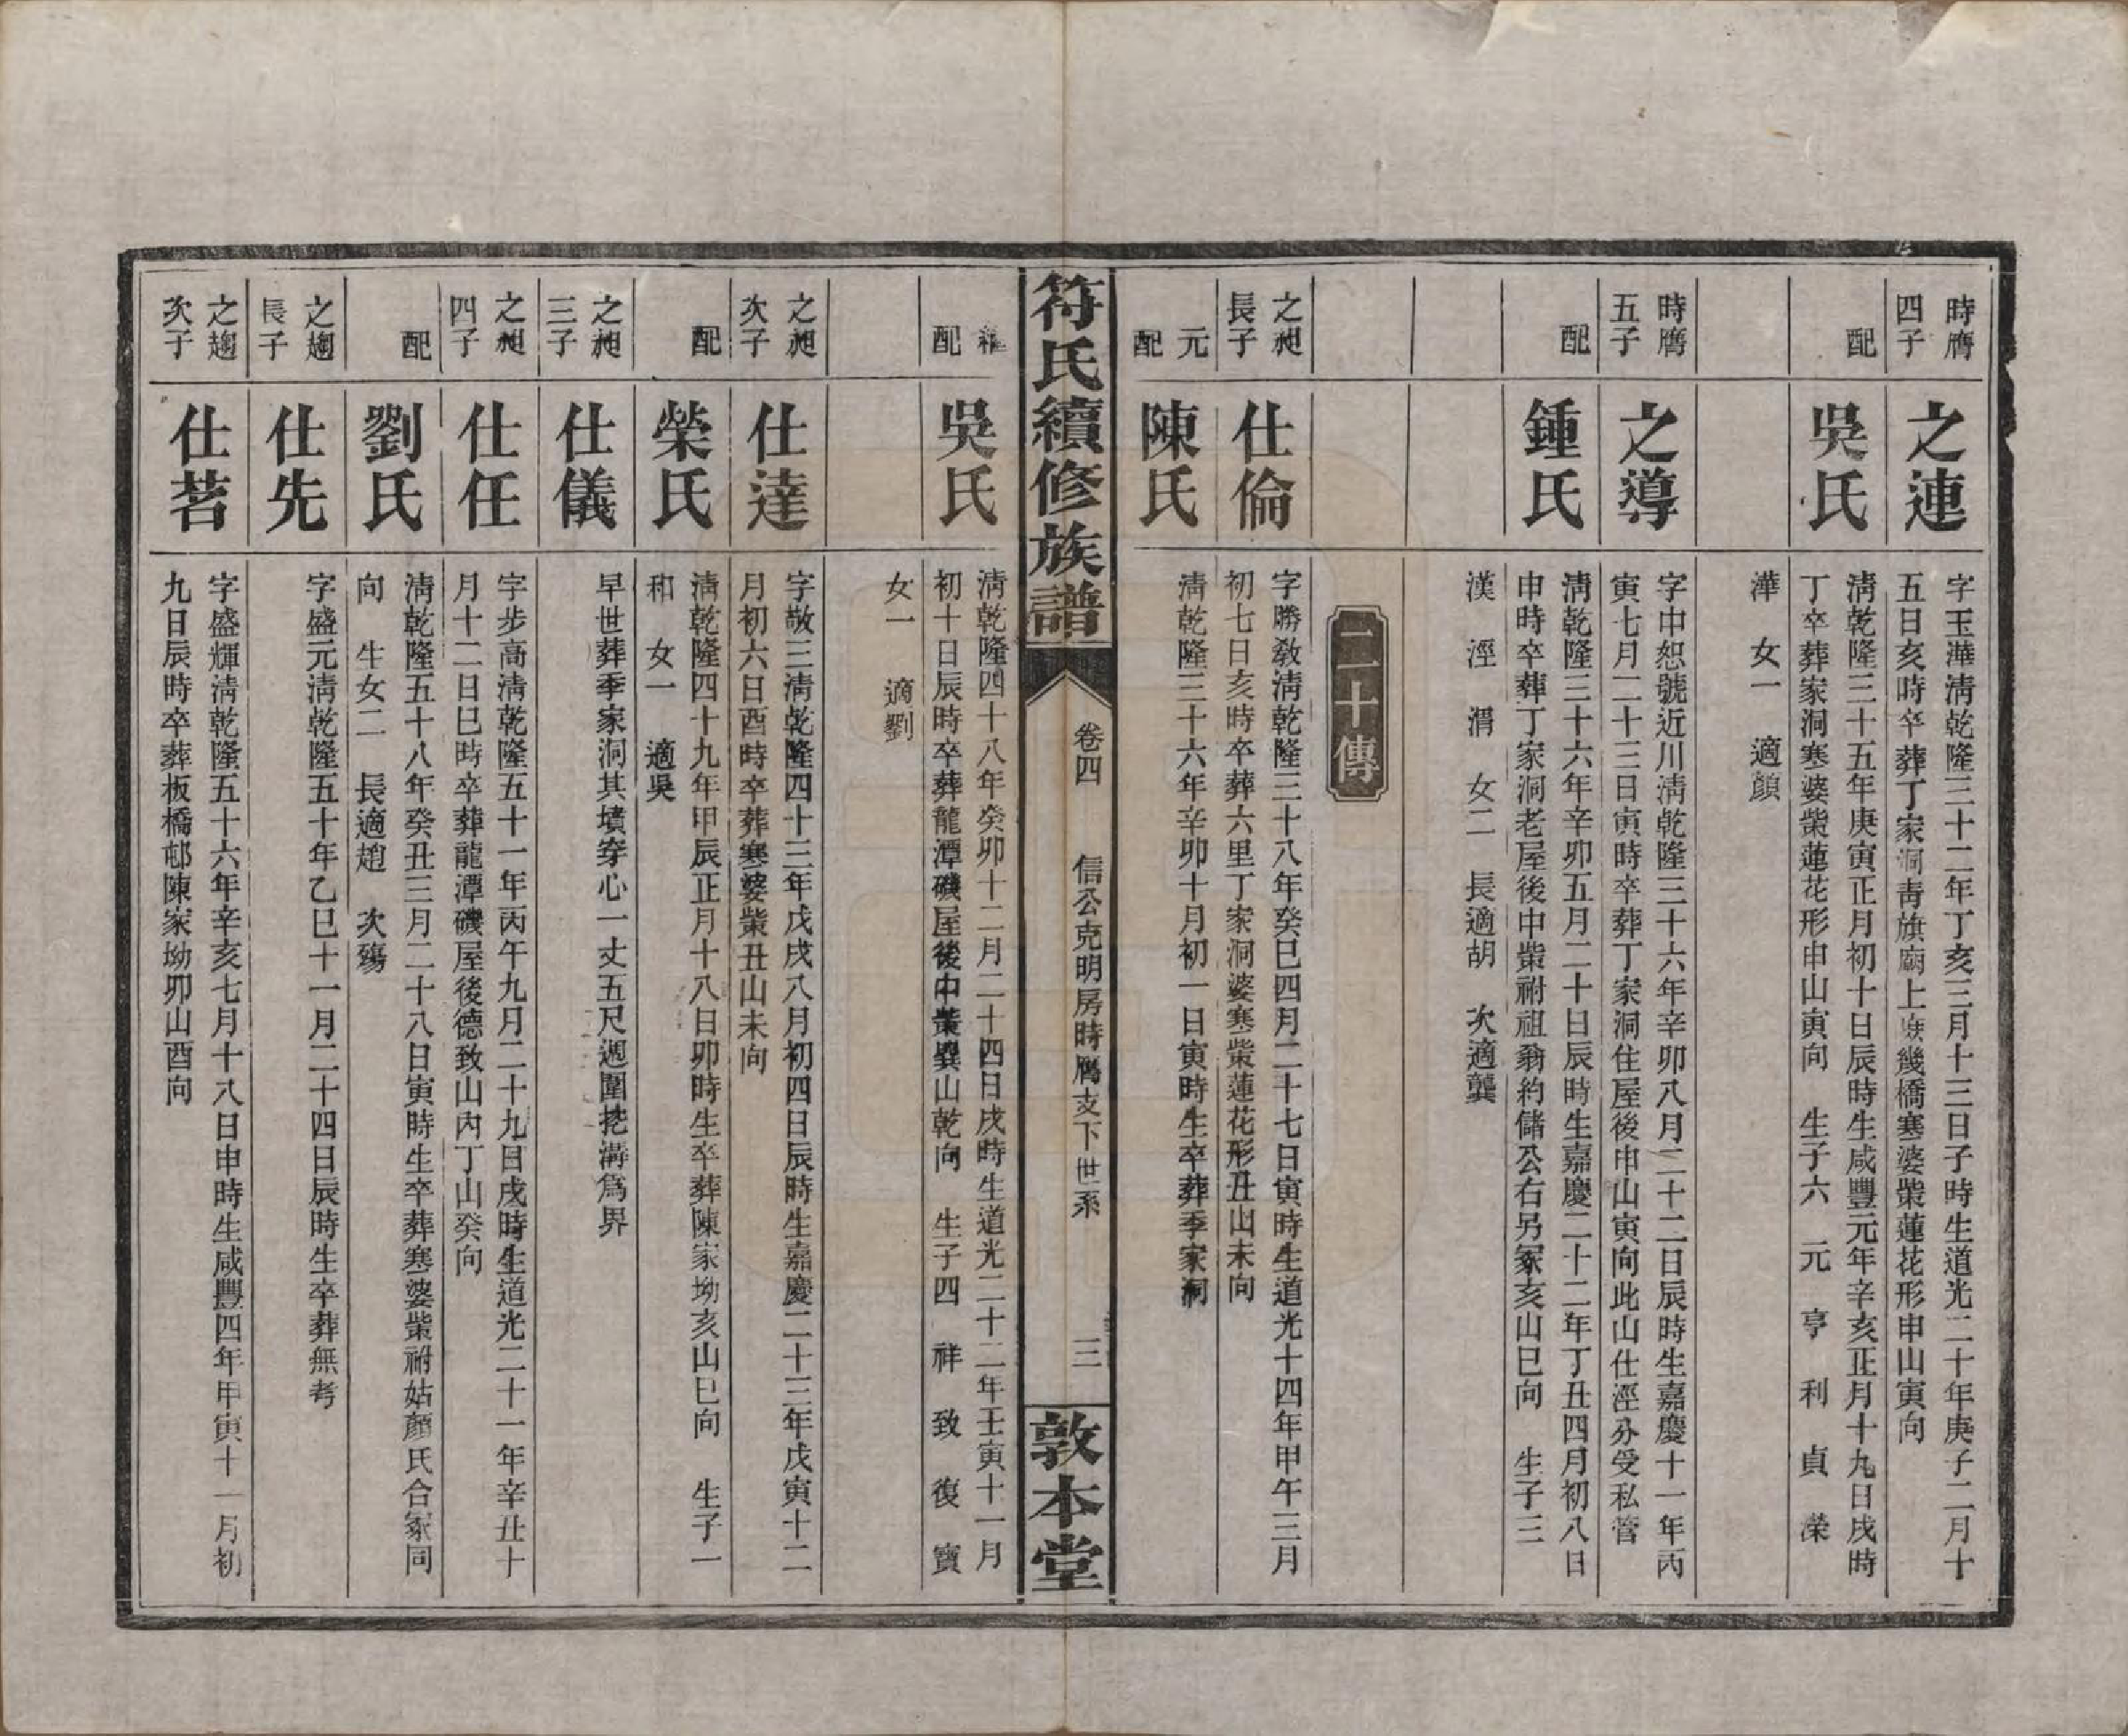 時膺
四子
之連
字玉澕淸乾隆三十二年丁亥三月十三日子時生道光二十年庚子二月十
五日亥時卒葬丁家洞靑旗廟上 幾橋寒婆柴蓮花形申山寅向
配
吳氏
淸乾隆三十五年庚寅正月初十日辰時生咸豐元年辛亥正月十九日戌時
丁卒葬家洞寒婆柴蓮花形申山寅向 生子六 元 亨 利 貞 濚
澕 女一 適顏
時膺
五子
之導
字中恕號近川淸乾隆三十六年辛卯八月二十二日辰時生嘉慶十一年丙
寅七月二十三日寅時卒葬丁家洞住屋後申山寅向此山仕涇分受私管
配
鍾氏
淸乾隆三十六年辛卯五月二十日辰時生嘉慶二十二年丁丑四月初八日
申時卒葬丁家洞老屋後中柴祔祖翁約儲公右另冢亥山巳向 生子三
漢 涇 渭 女二 長適胡 次適龔
二十傳
之昶
長子
仕倫
字勝教淸乾隆三十八年癸巳四月二十七日寅時生道光十四年甲午三月
初七日亥時卒葬六里丁家洞婆寒柴蓮花形丑山未向
元
配
陳氏
淸乾隆三十六年辛卯十月初一日寅時生卒葬季家洞
符氏續修族譜
卷四 信公克明房時膺支下世系
三
敦本堂
繼
配
吳氏
淸乾隆四十八年癸卯十二月二十四日戌時生道光二十二年壬寅十一月
初十日辰時卒葬龍潭磯屋後中柴巽山乾向 生子四 祥 致 復 寶
女一 適劉
之昶
次子
仕達
字敬三淸乾隆四十三年戊戌八月初四日辰時生嘉慶二十三年戊寅十二
月初六日酉時卒葬寒婆柴丑山未向
配
榮氏
淸乾隆四十九年甲辰正月十八日卯時生卒葬陳家坳亥山巳向 生子一
和 女一 適吳
之昶
三子
仕儀
早世葬季家洞其墳穿心一丈五尺週圍挖溝爲界
之昶
四子
仕任
字步高淸乾隆五十一年丙午九月二十九日戌時生道光二十一年辛丑十
月十二日巳時卒葬龍潭磯屋後德致山內丁山癸向
配
劉氏
淸乾隆五十八年癸丑三月二十八日寅時生卒葬寒婆柴祔姑顏氏合冢同
向 生女二 長適趙 次殤
之趨
長子
仕先
字盛元淸乾隆五十年乙巳十一月二十四日辰時生卒葬無考
之趨
次子
仕茗
字盛輝淸乾隆五十六年辛亥七月十八日申時生咸豐四年甲寅十一月初
九日辰時卒葬板橋邨陳家坳卯山酉向